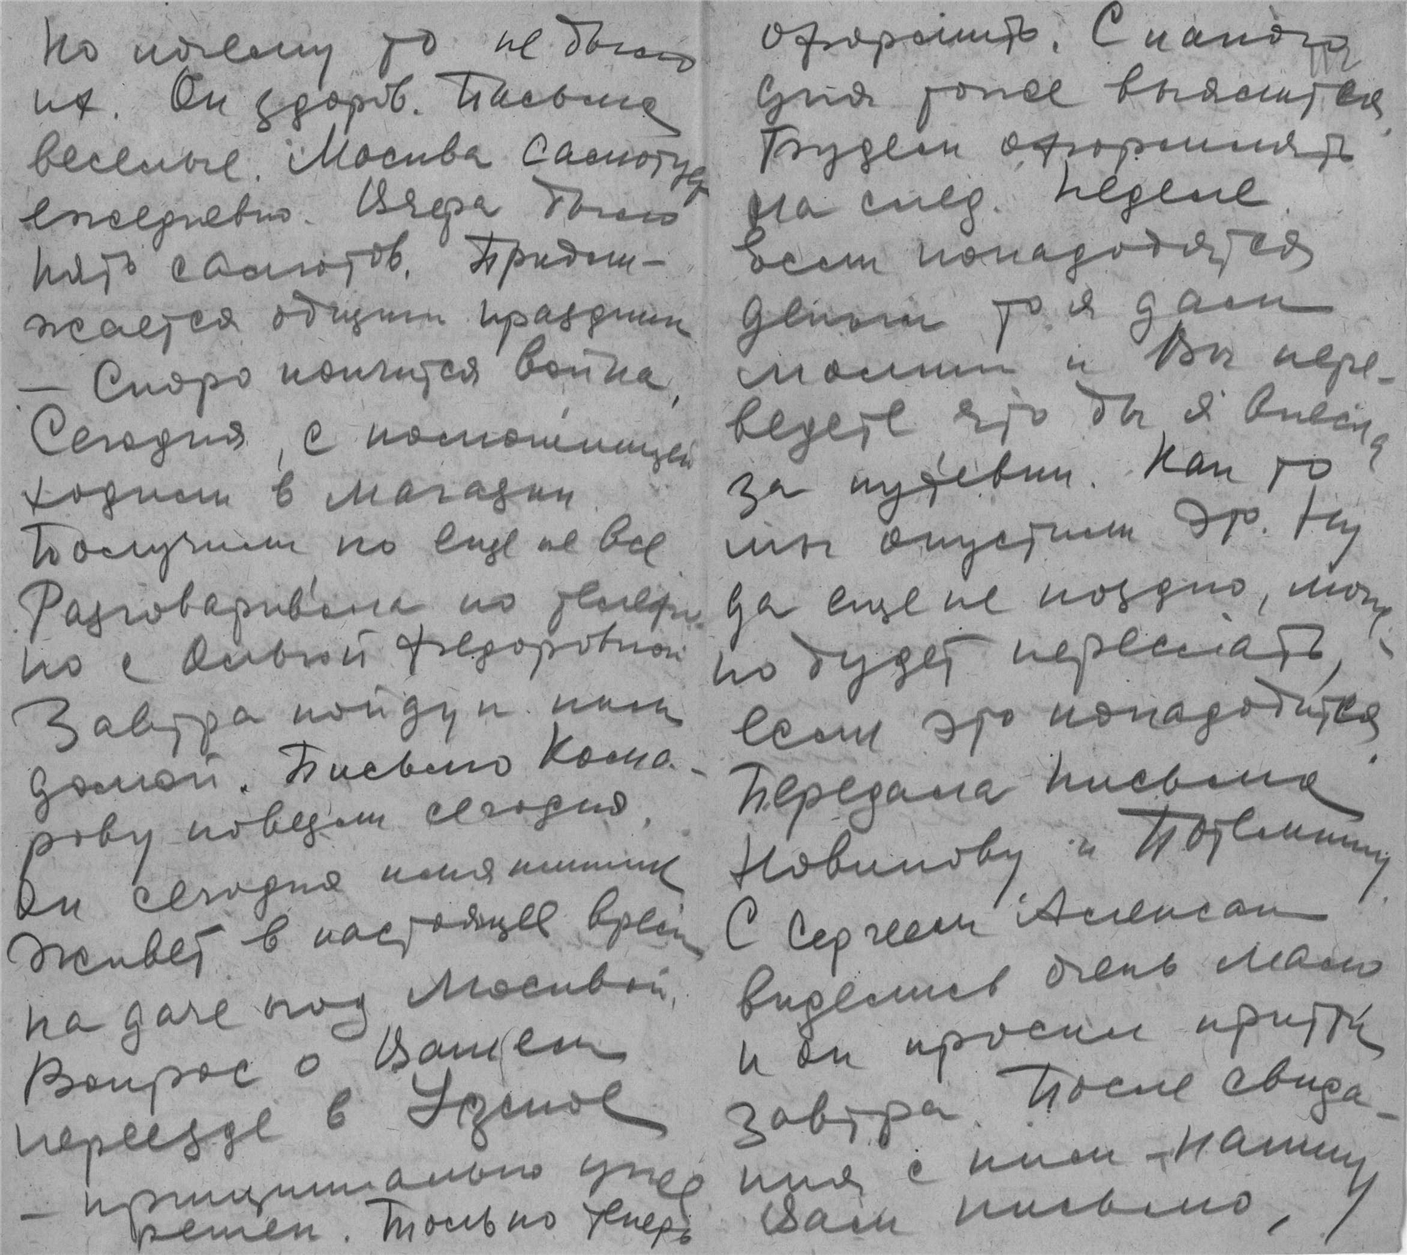 Но почему то не было
их. Он здоров. Письма
веселые. Москва салютует
ежедневно. Вчера было
пять салютов. Прибли-
жается общий праздник
— Скоро кончится война,
Сегодня, с помощницей
ходили в магазин
Получили но еще не все
Разговаривала по телефо-
но с Ольгой Федоровной
Завтра пойду к ним
домой. Письмо Кома-
рову повезли сегодня.
Он сегодня
Живет в настоящее время
на даче под Москвой.
Вопрос о Вашем
переезде в Узкое
— принципиально уже
решен. Только теперь
оформить. С какого
дня тоже выяснится
Будем оформлять
на след. неделе.
Если понадобятся
деньги то я дам
молнии и Вы пере-
ведете что бы я внесла
за путевки. Как то
мы опустили эт. Ну
да еще не поздно, мож-
но будет переслать,
если это понадобится
Передала письма
Новикову и Потемкину
С Сергеем Алексан
виделись очень мало
и он просил притти
завтра. После свида-
ния с ним - напишу
Вам письмо,